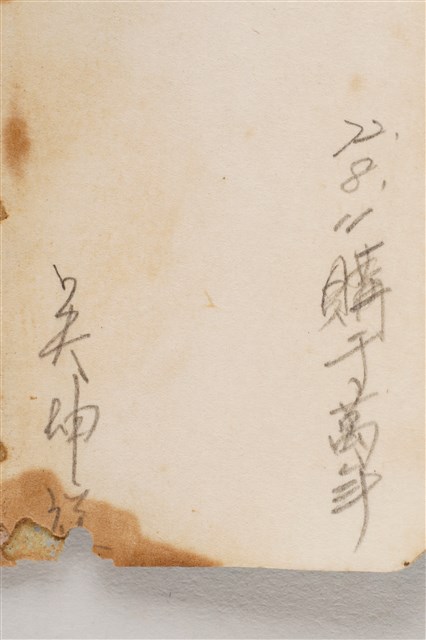 72.8.11購于萬年
吳坤